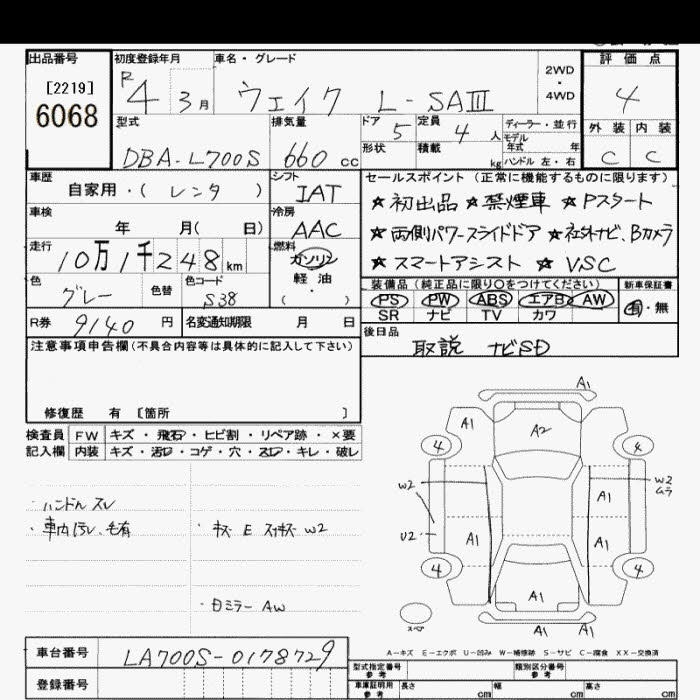 出品番号
[2219]
6068
初度登録年月
R4 3月
車名・グレード
ウェイク L-SAIII
2WD
・
4WD
評価点
4
型式
DBA-L700S
排気量
660 cc
ドア 5
定員 4 人
形状
積載 kg
ディーラー・並行
モデル
年式 年
ハンドル 左・右
外装 内装
C C
車歴
自家用・( レンタ )
シフト
IAT
車検
年 月( 日)
冷房
AAC
走行
10万1千248km
燃料
ガソリン
軽油
( ・ )
色
グレー
色替
色コード
S38
R券 9140 円
名変通知期限 月 日
セールスポイント(正常に機能するものに限ります)
★初出品 ★禁煙車 ★Pスタート
★両側パワースライドドア ★社外ナビ、Bカメラ
★スマートアシスト ★VSC
装備品(純正品に限り○をつけてください)
PS PW ABS エアB AW
SR ナビ TV カワ
新車保証書
有・無
後日品
取説 ナビSD
注意事項申告欄(不具合内容等は具体的に記入して下さい)
修復歴 有 [箇所 ]
検査員 FW キズ・飛石・ヒビ割・リペア跡・×要
記入欄 内装 キズ・汚レ・コゲ・穴・スレ・キレ・破レ
・ハンドルスレ
・車内汚レ、毛有
・キズ E スリキズ W2
・日ミラー AW
A1
A1
A2
4
4
W2
W2
ムラ
A1
U2
A1
A1
4
4
A1
スペア
A1 A1
A-キズ E-エクボ U-凹み W-補修跡 S-サビ C-腐食 XX-交換済
車台番号 LA700S-0178729
登録番号
型式指定番号
参考
類別区分番号
参考
車庫証明用
参考
長さ cm
幅 cm
高さ cm